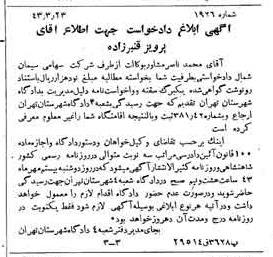 شماره ۱۹۲۶ ۴۳٫۳٫۲۳
آگهی ابلاغ دادخواست جهت اطلاع آقای
پرویز قنبرزاده
آقای محمد ناصر مشاور بوکالت از طرف شرکت سهامی سیمان
شمال دادخواستی بطرفیت شما بخواسته مطالبه مبلغ نود هزار ریال باستناد
رونوشت گواهی شده یکبرگ سفته و وکالت نامه و دلیل مدیریت بدادگاه
شهرستان تهران تقدیم که جهت رسیدگی بشعبه ۴ دادگاه شهرستان تهران
ارجاع و بشماره ۳۸۱٫۴۲ ثبت و بالنتیجه اقامتگاه شما را غیر معلوم معرفی
کرده است
اینک برحسب تقاضای وکیل خواهان و دستور دادگاه و اجازه ماده
۱۰۰ قانون آئین دادرسی مراتب سه نوبت متوالی در روزنامه رسمی کشور
شاهنشاهی و روزنامه کثیرالانتشار آگهی میشود که در روز دوشنبه بیستم مهر ماه
۴۳ ساعت هشت و نیم صبح در دادگاه شعبه ۴ شهرستان تهران جهت رسیدگی
حاضر شوید و در صورت عدم حضور دادگاه اقدام لازم را معمول خواهد
داشت و در آتیه هر نوع ابلاغی بوسیله آگهی لازم شود فقط یکنوبت در
روزنامه درج و مدت آن ده روز خواهد بود
بجای مدیر دفتر شعبه ۴ دادگاه شهرستان تهران
۳–۳